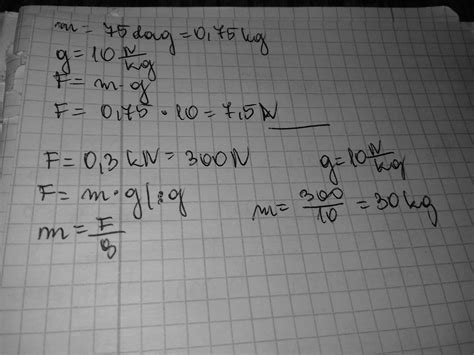 m = 75 dag = 0,75 kg
g = 10 N/kg
F = m · g
F = 0,75 · 10 = 7,5 N
F = 0,3 kN = 300 N
g = 10 N/kg
F = m · g |: g
m = 300/10 = 30 kg
m = F/g